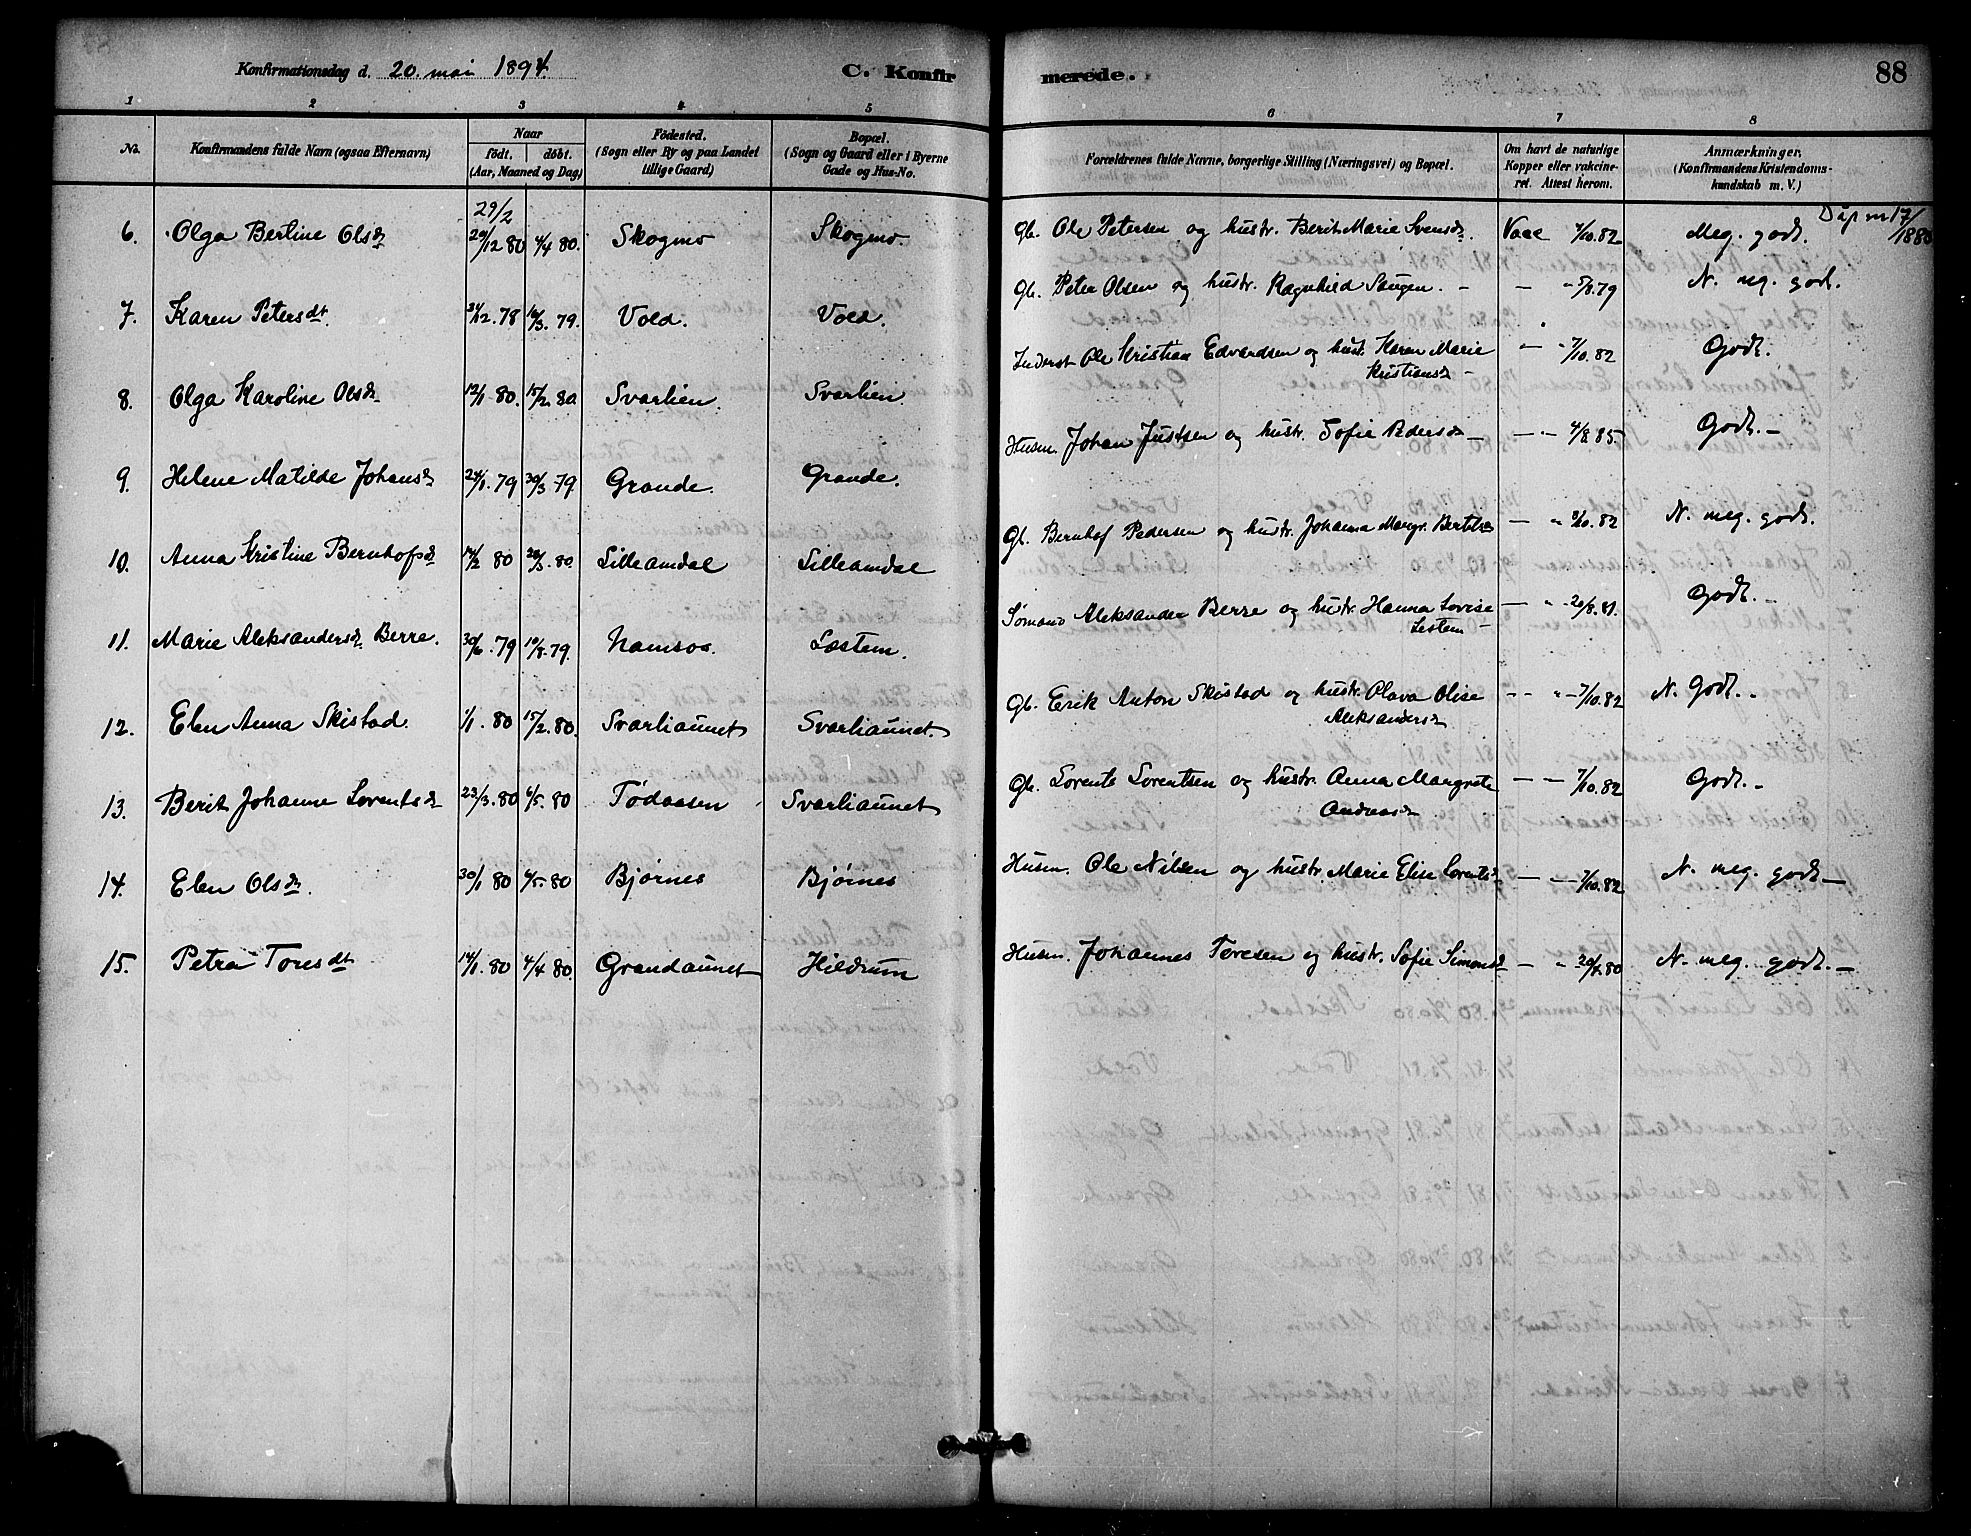 Konfirmationsdag d. 20. mai 1894.
C. Konfirmerede.
88
1 2 3 4 5 6 7 8
No.
Konfirmandens fulde Navn (ogsaa Efternavn)
Naar
födt. döbt.
(Aar, Maaned og Dag)
Födested.
(Sogn eller By og paa Landet
tillige Gaard)
Bopæl.
(Sogn og Gaard eller i Byerne
Gade og Hus-No.
Forældrenes fulde Navne, borgerlige Stilling (Næringsvei) og Bopæl.
Om havt de naturlige
Kopper eller vakcine-
ret. Attest herom.
Anmærkninger,
(Konfirmandens Kristendoms-
kundskab m. V.)
Dåp nr 17/
1880
29/2
6. Olga Bertine Olsdr 29/12 80 4/4 80. Skogmo Skogmo. Gb. Ole Petersen og hustr. Berit Marie Svensdr. Vacc 7/10.82 Meg. godt.
7. Karen Petersdt. 31/12.78 16/3.79. Vold. Vold. Gb. Peter Olsen og hustr. Ragnhild Saugen. – – " 5/8.79 N. meg. godt.
8. Olga Karoline Olsdr 12/1 80. 15/2.80. Svarlien. Svarlien. Inderst Ole Kristian Edvardsen og hust. Karen Marie
Kristiansdr – – " 7/10.82 Godt.
9. Helene Matilde Johansdr 24/1.79 30/3 79 Grande. Grande. Husm. Johan Justsen og hustr. Sofie Pedersdr – – – 4/8 85. Godt. –
10. Anna Kristine Bernhofsdr 14/2 80 28/3.80. Lilleamdal Lilleamdal Gb. Bernhof Pedersen og hustr. Johanna Margr. Bertelsdr – " 8/10.82 N. meg. godt.
11. Marie Aleksandersdr. Berre. 30/6.79 10/8.79. Namsos. Læstem. Sømand Aleksander Berre og hustr. Hanna Lovise
Lestem – – " 20/8.81. Godt. –
12. Elen Anna Skistad. 1/1.80 15/2.80. Svarliaunet Svarliaunet. Gb. Erik Anton Skistad og hustr. Olava Olise
Aleksandersdr – " 7/10.82 N. Godt. –
13. Berit Johanne Lorentsdr 23/3.80 4/5.80 Tödaasen Svarliaunet Gb. Lorents Lorentsen og hustr. Anna Margrete
Andreasdr – – 7/10.82 Godt. –
14. Elen Olsdr. 30/1 80 4/5.80 Bjørnes Bjørnes Husm. Ole Nilsen og hustr. Marie Elise Lorentsdr – – 7/10.82 N. meg. godt. –
15. Petra Toresdt 14/1.80 4/4 80 Grandaunet Hildrum Husm. Johannes Toresen og hustr. Sofie Simonsdr – " N. meg. godt. –